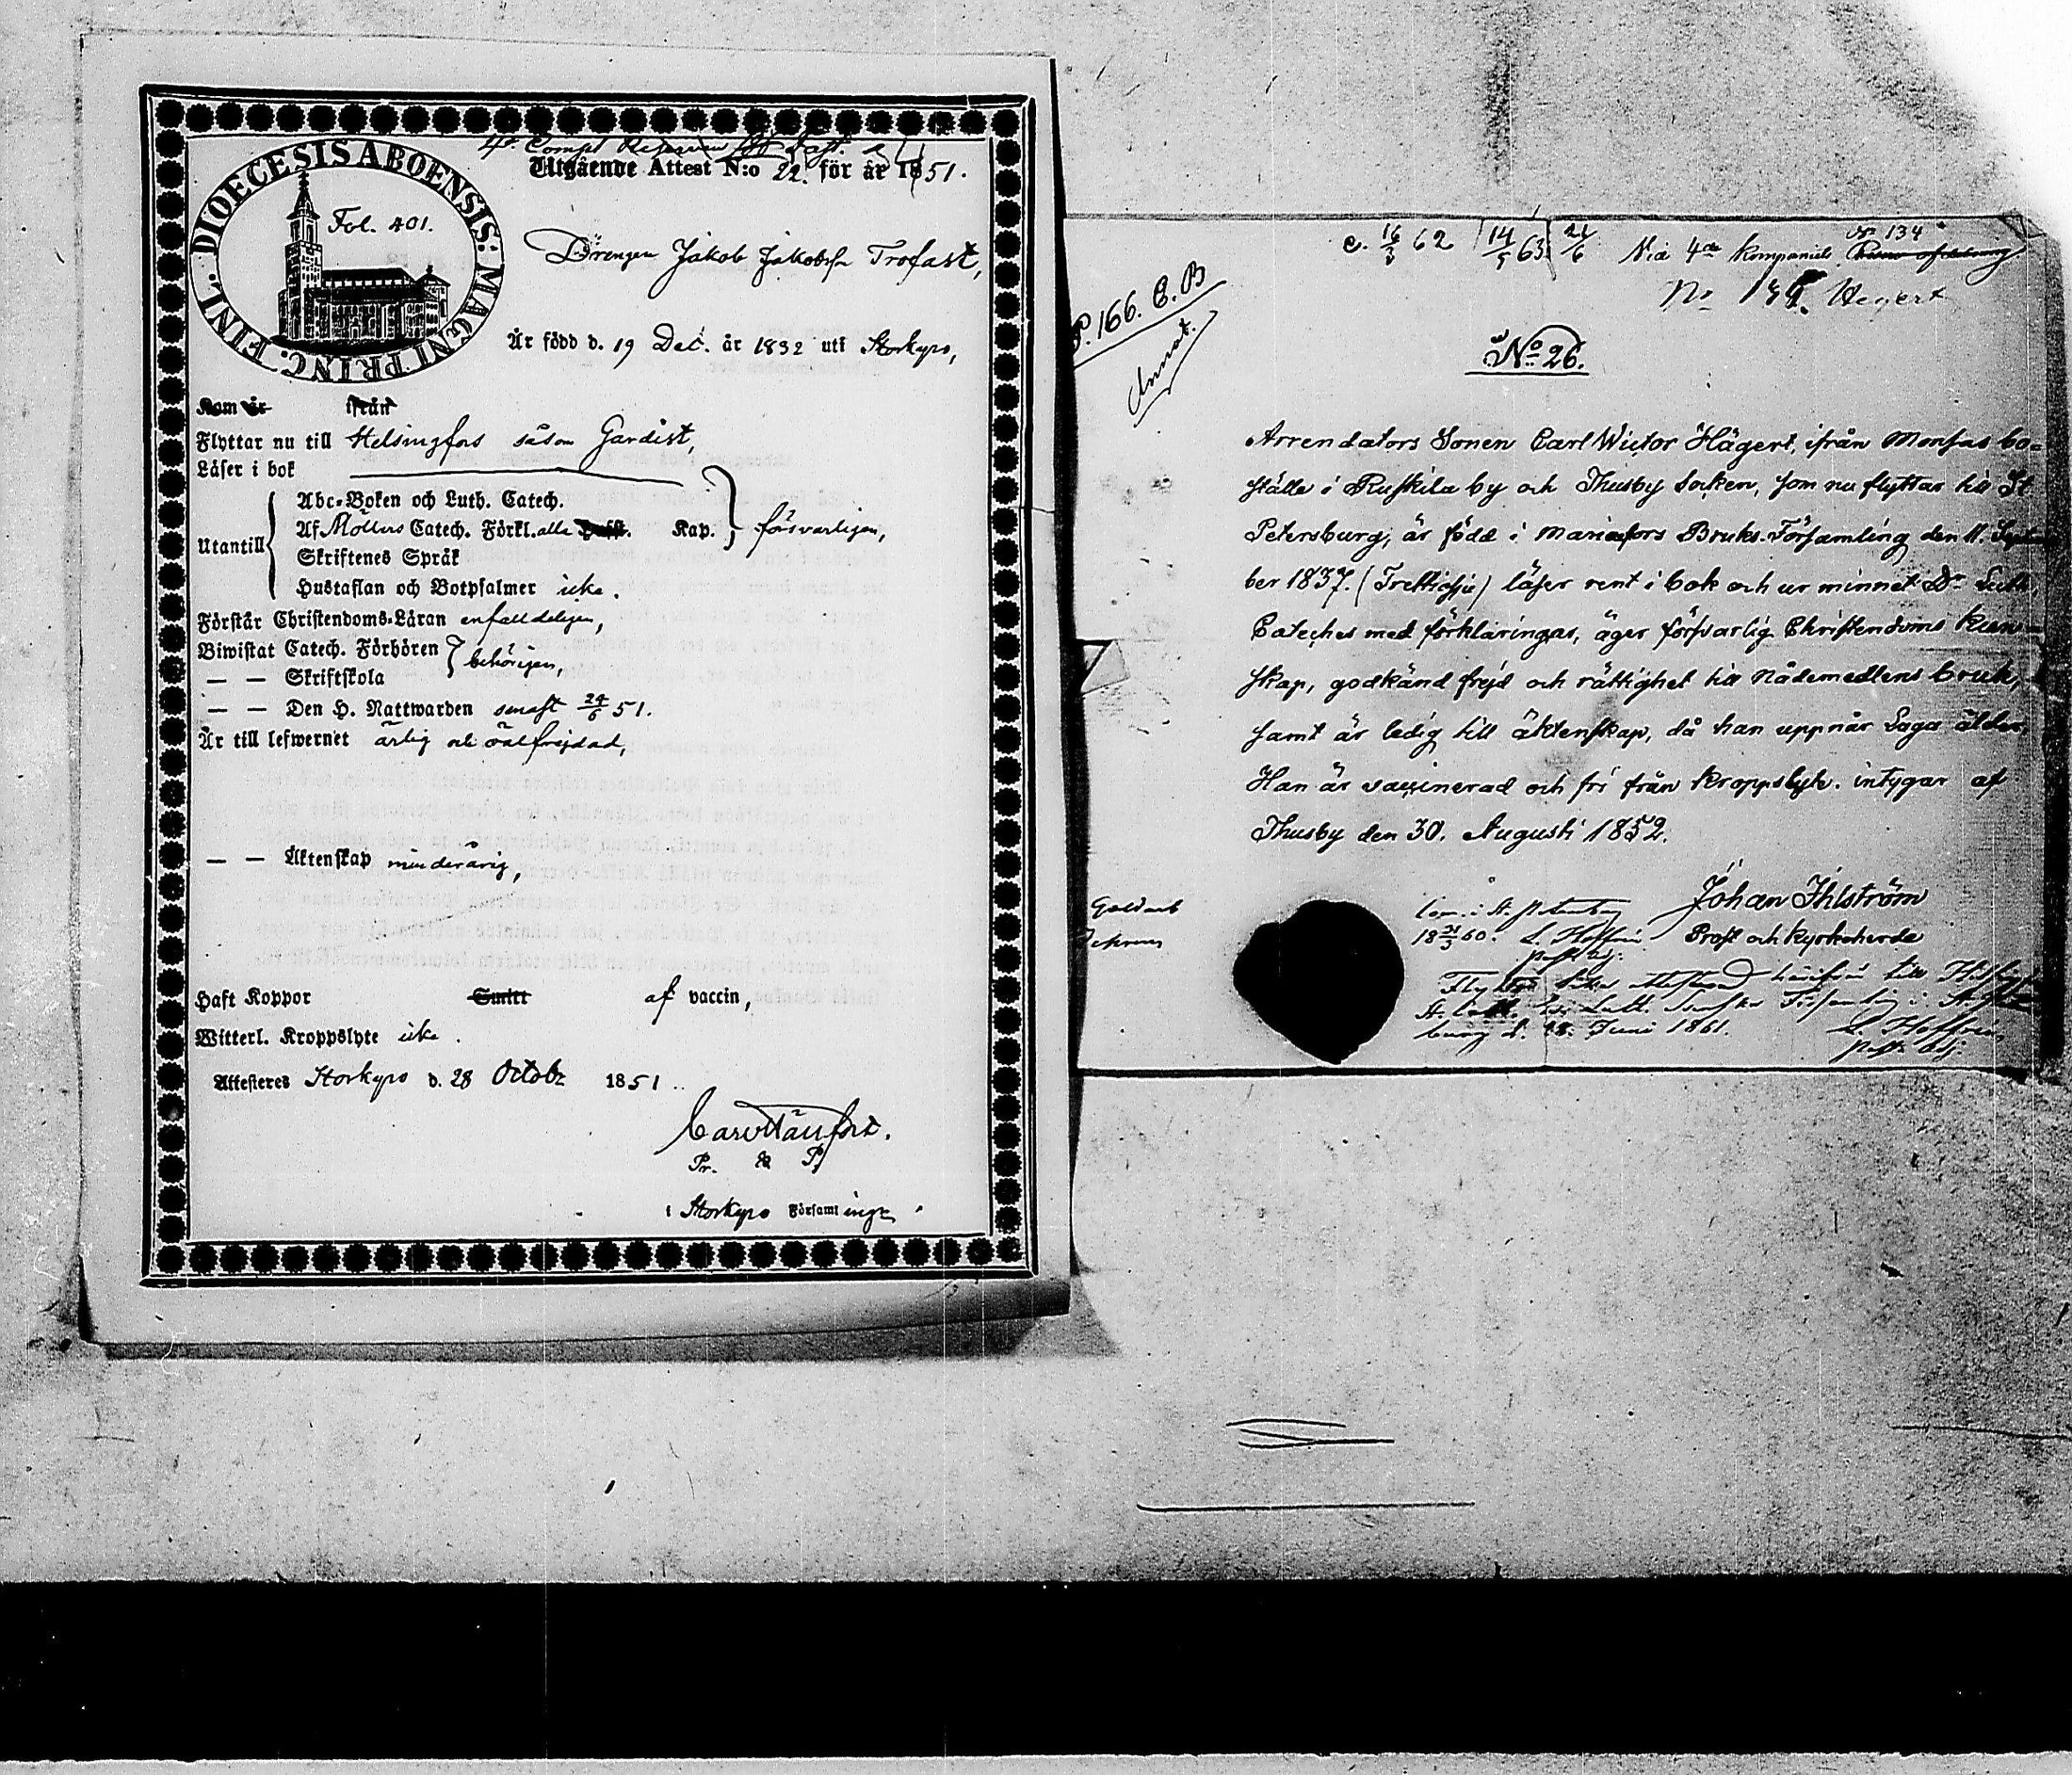 DIOECESIS ABOENSIS: MAGNI PRINC. FINL.
Fol. 401.
4e Comp
Utgående Attest N:o 22. för år 1851.
Drängen Jakob Jakobsson Trofast,
Är född d. 19 Dec. år 1832 uti Storkyro,
Kom år ifrån
Flyttar nu till Helsingfors såsom Gardist,
Läser i bok
Utantill
Abc-Boken och Luth. Catech.
Af Möllers Catech. Förkl. alla Kap. försvarligen,
Skriftenes Språk
Hustaflan och Botpsalmer icke.
Förstår Christendoms-Läran enfalldeligen,
Biwistat Catech. Förhören behörigen,
— — Skriftskola
— — Den H. Nattwarden senast 24/6 51.
Är till lefwernet ärlig och välfrejdad,
— — Äktenskap minderårig,
Haft Koppor Smitt af vaccin,
Witterl. Kroppslyte icke.
Attesteres Storkyro d. 28 Octobr 1851.
Pr. & P.
i Storkyro Församlinge
c. 16/3 62 14/5 63 21/6 Vid 4de Kompaniets
No 134
No Hegert
P. 166. C. B
Annot.
No 26.
Arrendators Sonen Carl Wictor Hägert, ifrån Monsas bo-
ställe i Ruskila by och Thusby Socken, som nu flyttar till St
Petersburg, är född i Mariæfors Bruks-Församling den 11. Septem
ber 1837. (Trettiosju) läser rent i bok och ur minnet Dr Luth.
Cateches med förklaringar, äger försvarlig Christendoms kun-
skap, godkänd frejd och rättighet till Nådemedlens bruk,
samt är ledig till äktenskap, då han uppnår Laga ålder.
Han är vaccinerad och fri från kroppslyte. intygar af
Thusby den 30. Augusti 1852.
Johan Ihlström
Prost och Kyrkoherde
kom. i St. Petersburg
1860. L. Hoffrén
past. adj.
härifrån till
St. Församling i St. Peters
burg d. 28. Juni 1861.
L. Hoffrén
past. adj.